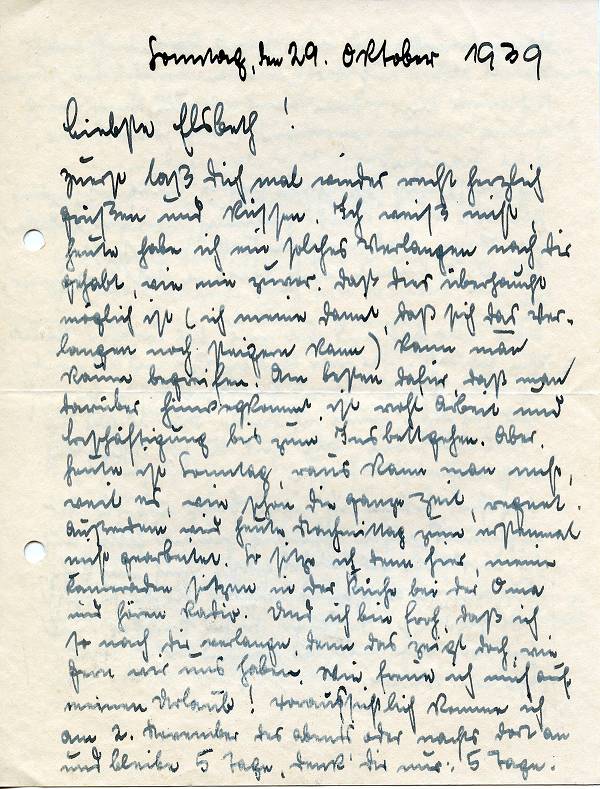 Sonntag, den 29. Oktober 1939
Liebste Elsbeth!
Zuerst laß Dich mal wieder recht herzlich
grüßen und küssen. Ich weiß nicht,
heute habe ich ein solches Verlangen nach Dir
gehabt, wie nie zuvor. Daß dies überhaupt
möglich ist (ich meine damit, daß sich das Ver-
langen noch steigern kann) kann man
kaum begreifen. Am besten dafür, daß man
darüber hinwegkommt, ist recht Arbeit und
Beschäftigung bis zum Insbettgehen. Aber,
heute ist Sonntag, raus kann man nicht,
weil es, wie schon die ganze Zeit, regnet.
Außerdem wird heute Nachmittag zum erstenmal
nicht gearbeitet. So sitze ich denn hier, meine
Kameraden sitzen in der Küche bei der Oma
und hören Radio. Und ich bin froh, daß ich
so nach Dir verlange, denn das zeigt doch, wie
gern wir uns haben. Wie freue ich mich auf
meinen Urlaub! Voraussichtlich komme ich
am 2. November des abends oder nachts dort an
und bleibe 5 Tage, denk' Dir nur: 5 Tage.